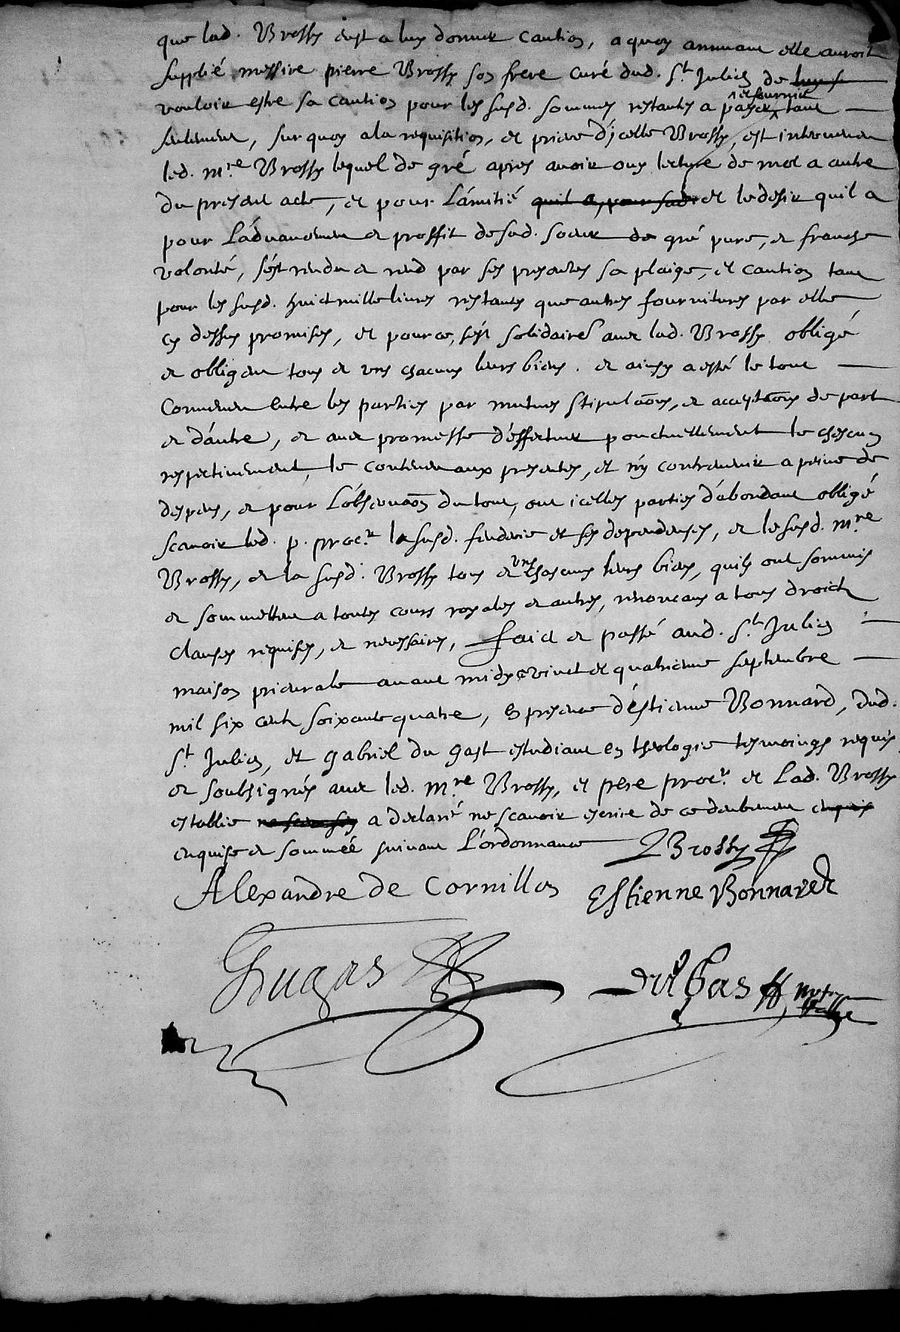 que lad. Brossy eust a luy donner caution, a quoy annuant elle auroit
supplié messire pierre Brossy son frere curé dud. St Julien de
vouloir estre sa caution pour les susd. sommes restantes a payer et fournir tant
seulement, sur quoy a la requisition, et priere d'jcelle Brossy, est interuenu
led. mre Brossy lequel de gré apres auoir ouy lecture de mot a autre
du present acte, et pour l'amitié et le desir quil a
pour l'aduancement et proffit de sad. soeur de gré pure, et franche
volonté, s'est rendu et rend par ses presentes sa plaige, et caution tant
pour les susd. huict mille liures restants que autres fournitures par elle
cy dessus promises, et pour ce, s'est solidairemt auec lad. Brossy obligé
et obligent tous et vns chacuns leurs biens. et ainsy a esté le tout
conuenu entre les parties par mutues stipulaōns, et acceptaōns de part
et d'autre, et auec promesse d'effectuer ponctuellement le chascun
respectiuement le contenu aux presentes, et n'y contreuenir a peine de
despens, et pour l'obseruaōn du tout, ont icelles parties d'abondant obligé
scauoir led. p. procr. la susd. fenderie et ses dependences, et le susd. mre
Brossy, et la susd. Brossy tous et vns chascuns leurs biens, quils ont soumis
et soumettent a toutes cours royales et autres, renonceans a tous droicts
clauses requises, et necessaires, faict et passé aud. St Julien
maison priorale auant midy vingt et quatrieme septembre
mil six cents soixante quatre, en presence d'estienne Bonnard, dud.
St Julien, et gabriel du gast estudiant en theologie tesmoings requis
et soubsignés auec led. mre Brossy, et pere procr. et lad. Brossy
establie a declaré ne scauoir escrire de ce deubement
enquise et sommée suiuant l'ordonnance PBrossy
Alexandre de Cornillon Estienne Bonnard
Dugas Delbas notre